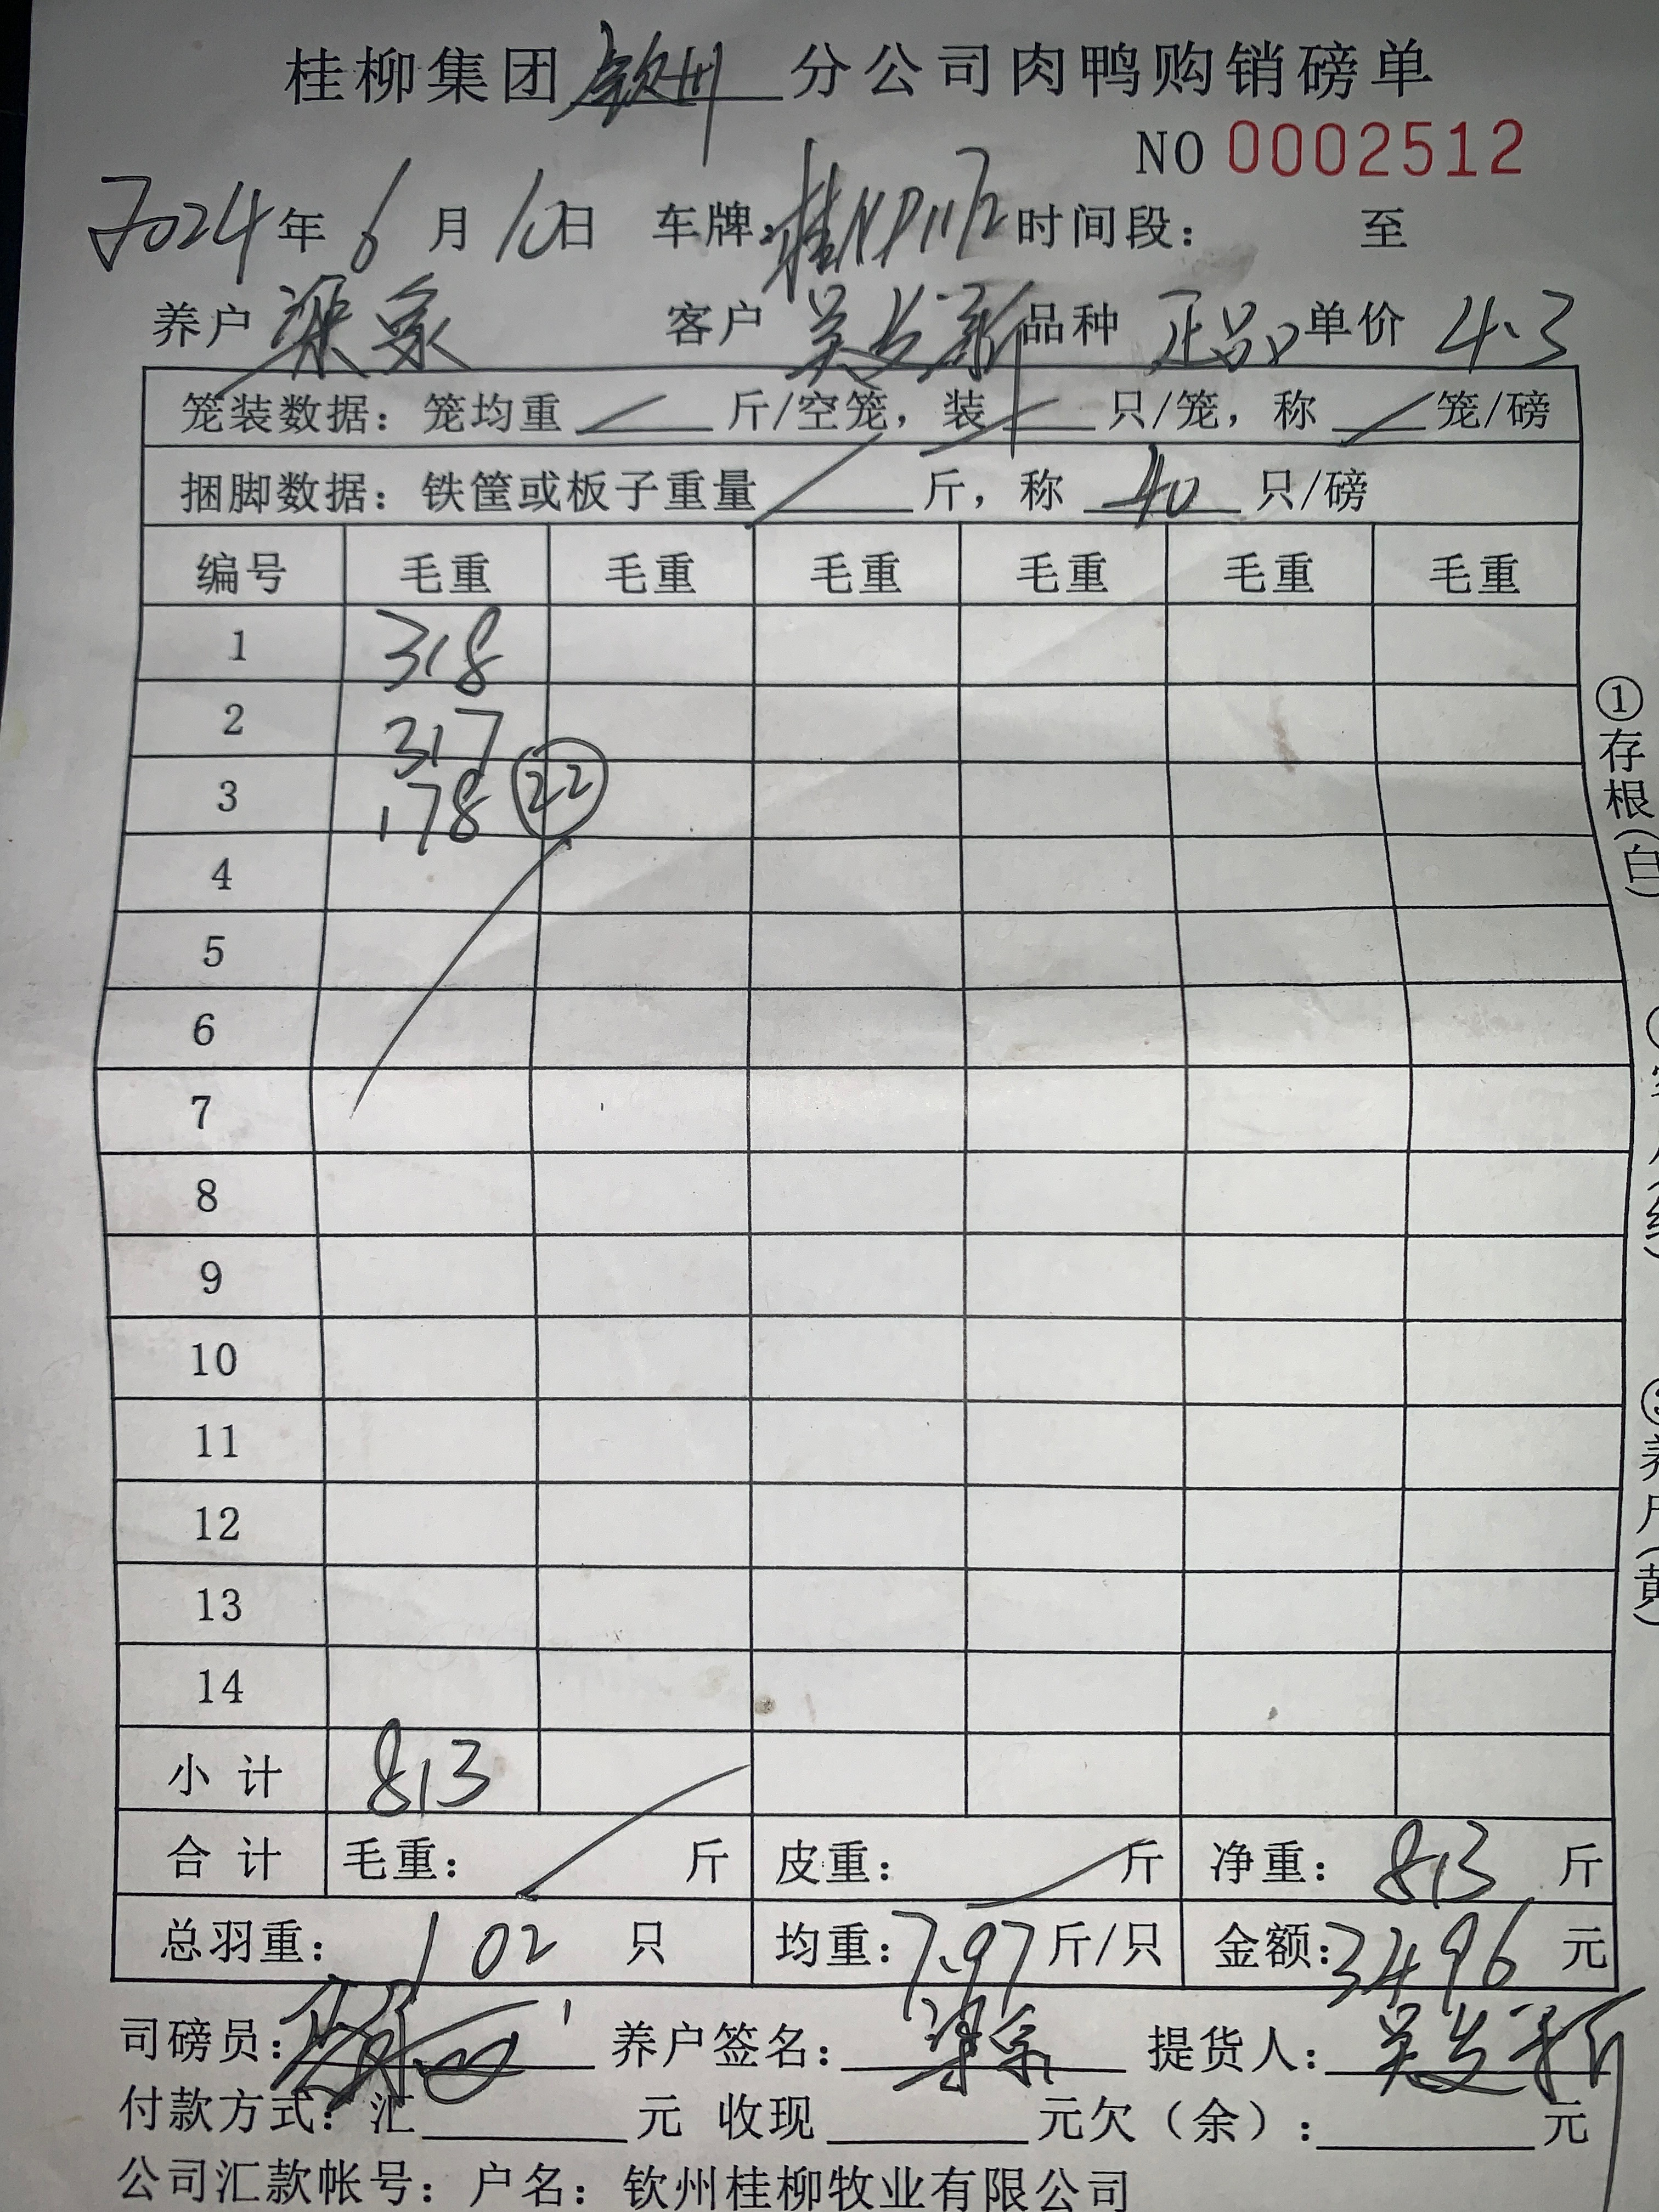 桂柳集团钦州分公司肉鸭购销磅单
NO 0002512
2024年6月10日 车牌: 时间段: 至
养户 梁家 客户 吴发新 品种 正品 单价 4.3
笼装数据: 笼均重 斤/空笼, 装 只/笼, 称 笼/磅
捆脚数据: 铁筐或板子重量 斤, 称 40 只/磅
编号 毛重 毛重 毛重 毛重 毛重 毛重
1 318
2 317
3 178 22
4
5
6
7
8
9
10
11
12
13
14
小计 813
合计 毛重: 斤 皮重: 斤 净重: 813 斤
总羽重: 102 只 均重: 7.97 斤/只 金额: 3496 元
司磅员: 养户签名: 提货人: 吴发新
付款方式: 汇 元 收现 元欠(余): 元
公司汇款帐号: 户名: 钦州桂柳牧业有限公司
①存根(白)
养户(黄)